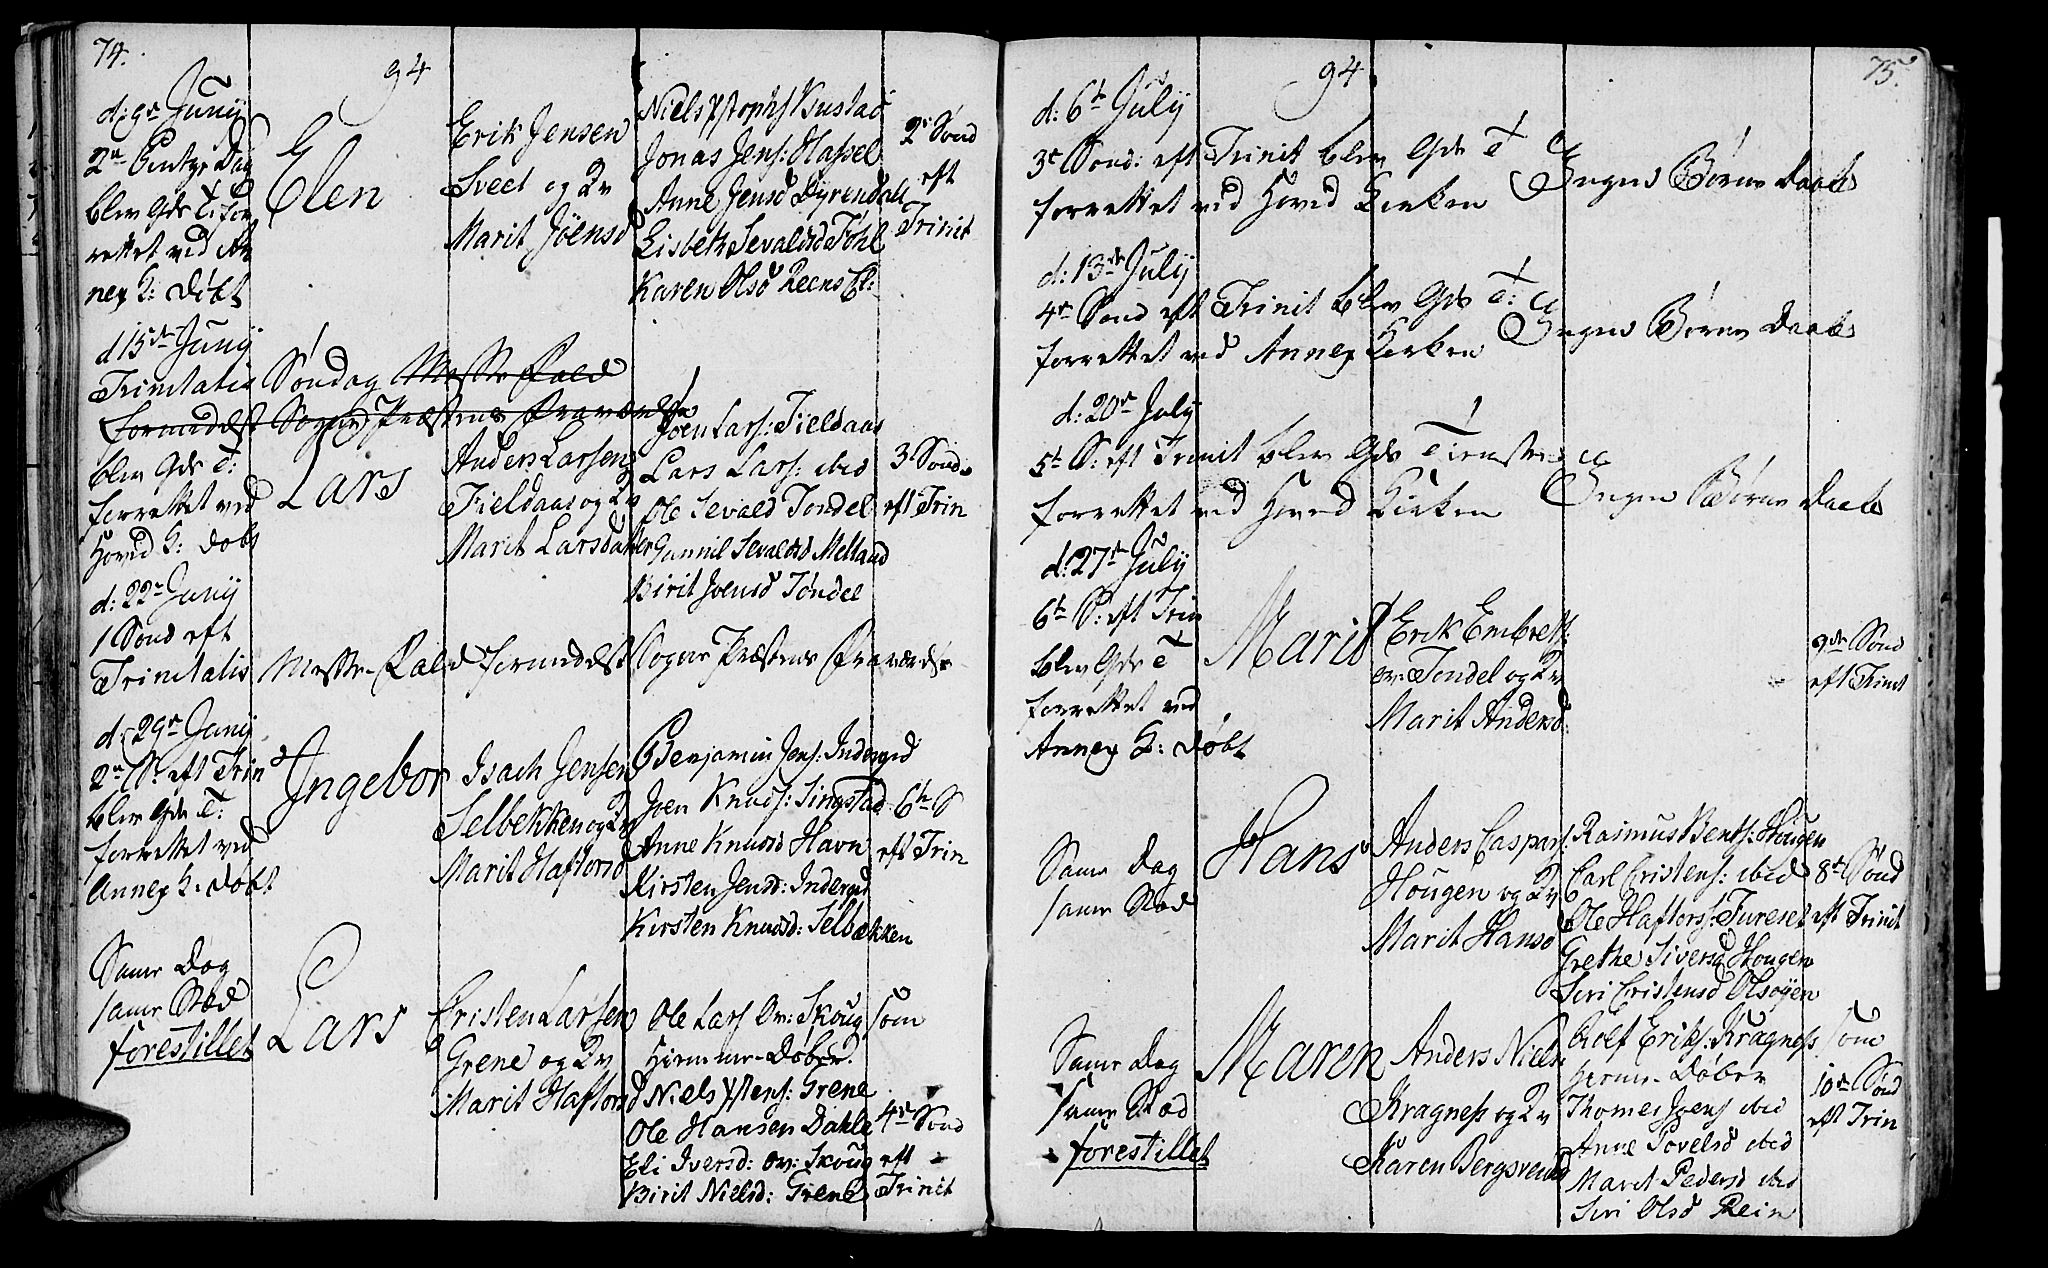 74.
94
d: 9de Junij
2den Pintze Dag
blev Gds T: for
rettet ved An
nex K: døbt
Elen
Erik Jensen
Sveet og Qv
Marit Jøensd
Niels Xstophs Bustad
Jonas Jens: Hassel
Anne Jensd Dyrendall
Lisbeth Sevaldsd Føhl
Karen Olsd Reens El:
2de Sønd
eft
Trinit
d 15de Junij
Trinitatis Søndag Messe-Fald
formedelst Sogne Præstens Fraværelse
blev Gds T:
forrettet ved
Hoved K: døbt
Lars
Anders Larsen
Fieldaas og Qv
Marit Larsdatter
Joen Lars: Fieldaas
Lars Lars: ibid
Ole Sevald Tøndel
Gunnil Sevaldsd Melland
Birit Joensd Tøndel
3 Sønd
eft Trin
d: 22de Junij
1 Sønd eft
Trinitatis Messe-Fald formedelst Sogne Præstens Fraværelse
d: 29de Junij
2den S: eft Trin
blev Gds T:
forrettet ved
Annex K: døbt
Ingebor
Isach Jensen
Selbekken og Qv
Marit Haftorsd
Benjamin Jens: Indergrd
Joen Knuds: Singstad
Anne Knudsd Havn
Kirsten Jensd: Indergrd
Kirsten Knudsd: Selbækken
6te S
eft Trin
Same Dag
same Sted
forestillet
Lars
Cristen Larsen
Grene og Qv
Marit Haftorsd
Ole Lars Ov: Skoug
Hiemme-Døber
Niels Xstens: Grene
Ole Hansen Dahle
Eli Iversd: ov: Skoug
Birit Nielsd: Grene
som
4de Sønd
eft
Trinit
94
75.
d: 6te July
3de Sønd: eft Trinit blev Gds T
forrettet ved Hoved Kirken
Ingen Børne Daab
d: 13de July
4de Sønd eft Trinit blev Gds T:
forrettet ved Annex Kirken
Ingen Børne Daab
d: 20de July
5te S: eft Trinit blev Gds Tieneste
forrettet ved Hoved Kirken
Ingen Børne Daab
d: 27de July
6te S: eft Trin
blev Gds T
forrettet ved
Annex K: døbt
Marit
Erik Embrets:
ov: Tøndel og Qv
Marit Andersd:
9de Sønd
eft Trinit
Same Dag
same Sted
Hans
Anders Caspars
Hougen og Qv
Marit Hansd
Rasmus Bents: Hougen
Carl Cristens: ibid
Ole Haftors: Fureset
Grethe Siversd Hougen
Siri Cristensd Olsøyen
8de Sønd
eft Trinit
Same Dag
same Sted
forestillet
Maren
Anders Niels
Kragness og Qv
Karen Bergsvensd
Rolf Eriks: Kragness
Hieme-Døber
Thomes Joens ibid
Anne Povelsd ibid
Marit Pedersd ibid
Siri Olsd Rein
som
10de Sønd
eft Trin